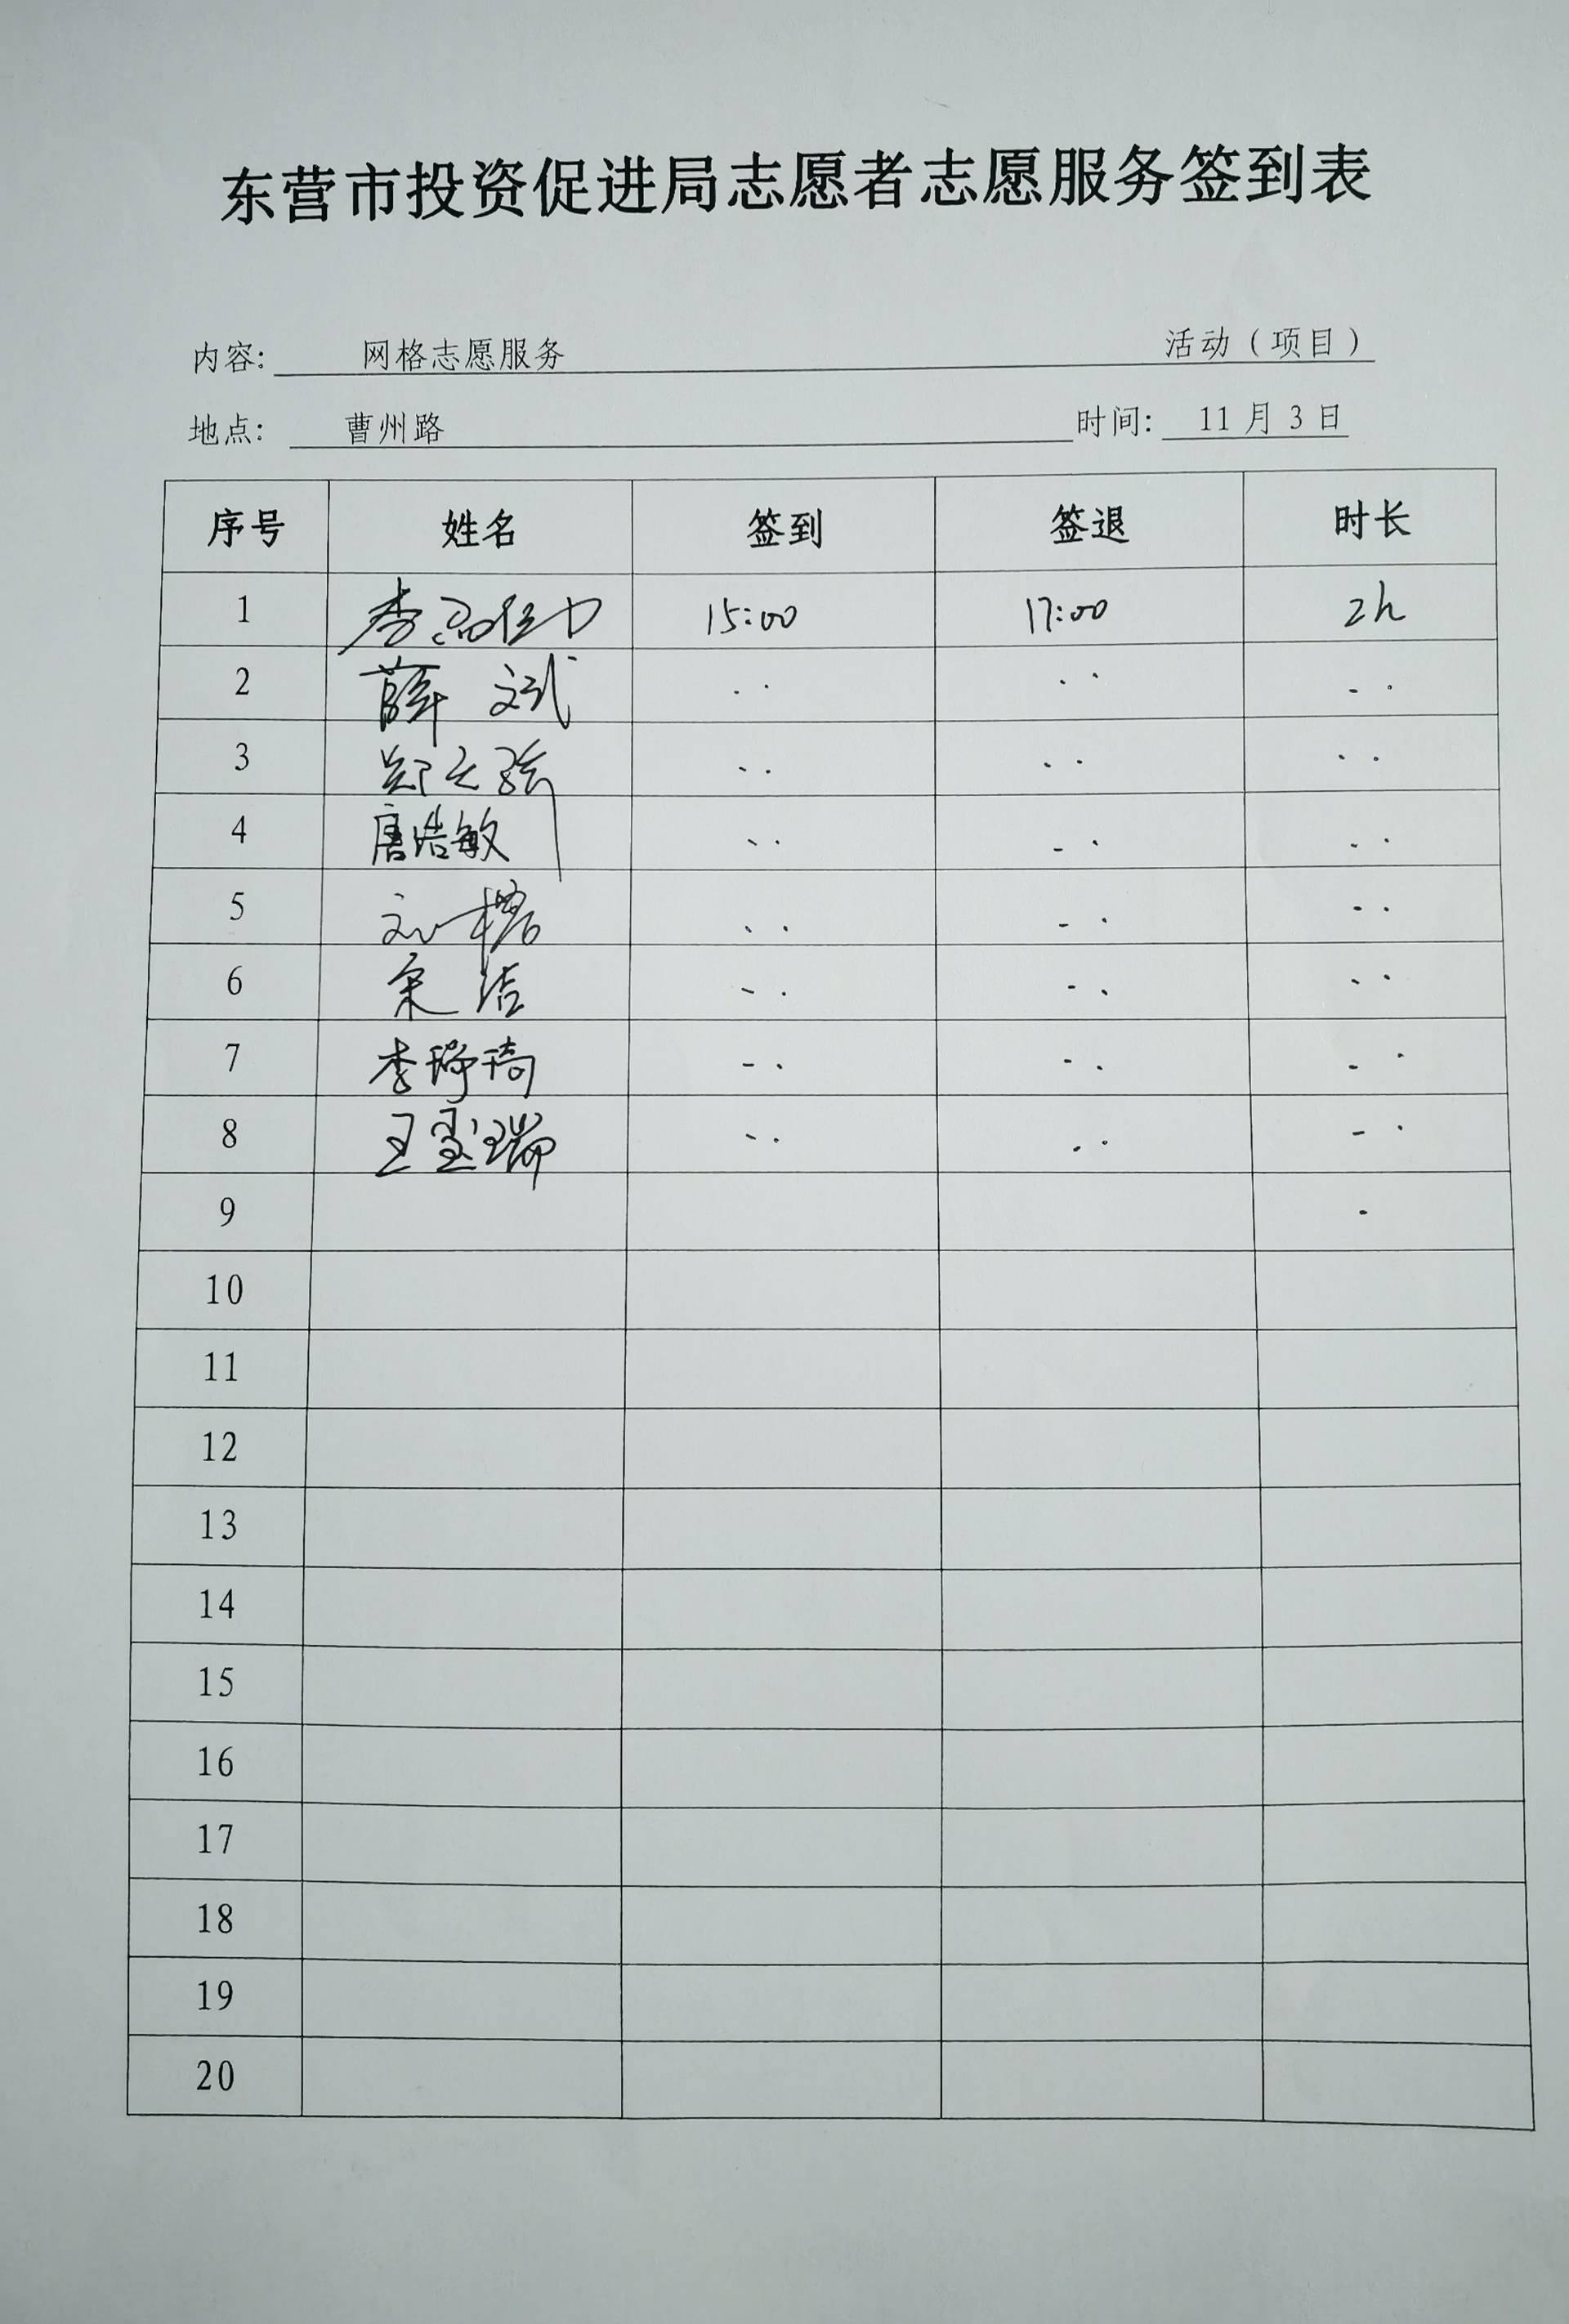 东营市投资促进局志愿者志愿服务签到表
内容: 网格志愿服务 活动（项目）
地点: 曹州路 时间: 11月3日
序号 姓名 签到 签退 时长
1 李 15:00 17:00 2h
2 薛文斌
3 郑
4 唐浩敏
5 刘
6 洁
7 李琦
8 王玺瑞
9
10
11
12
13
14
15
16
17
18
19
20